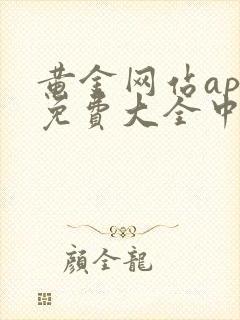 黄金网佔ap
免費大全中
顏全龍